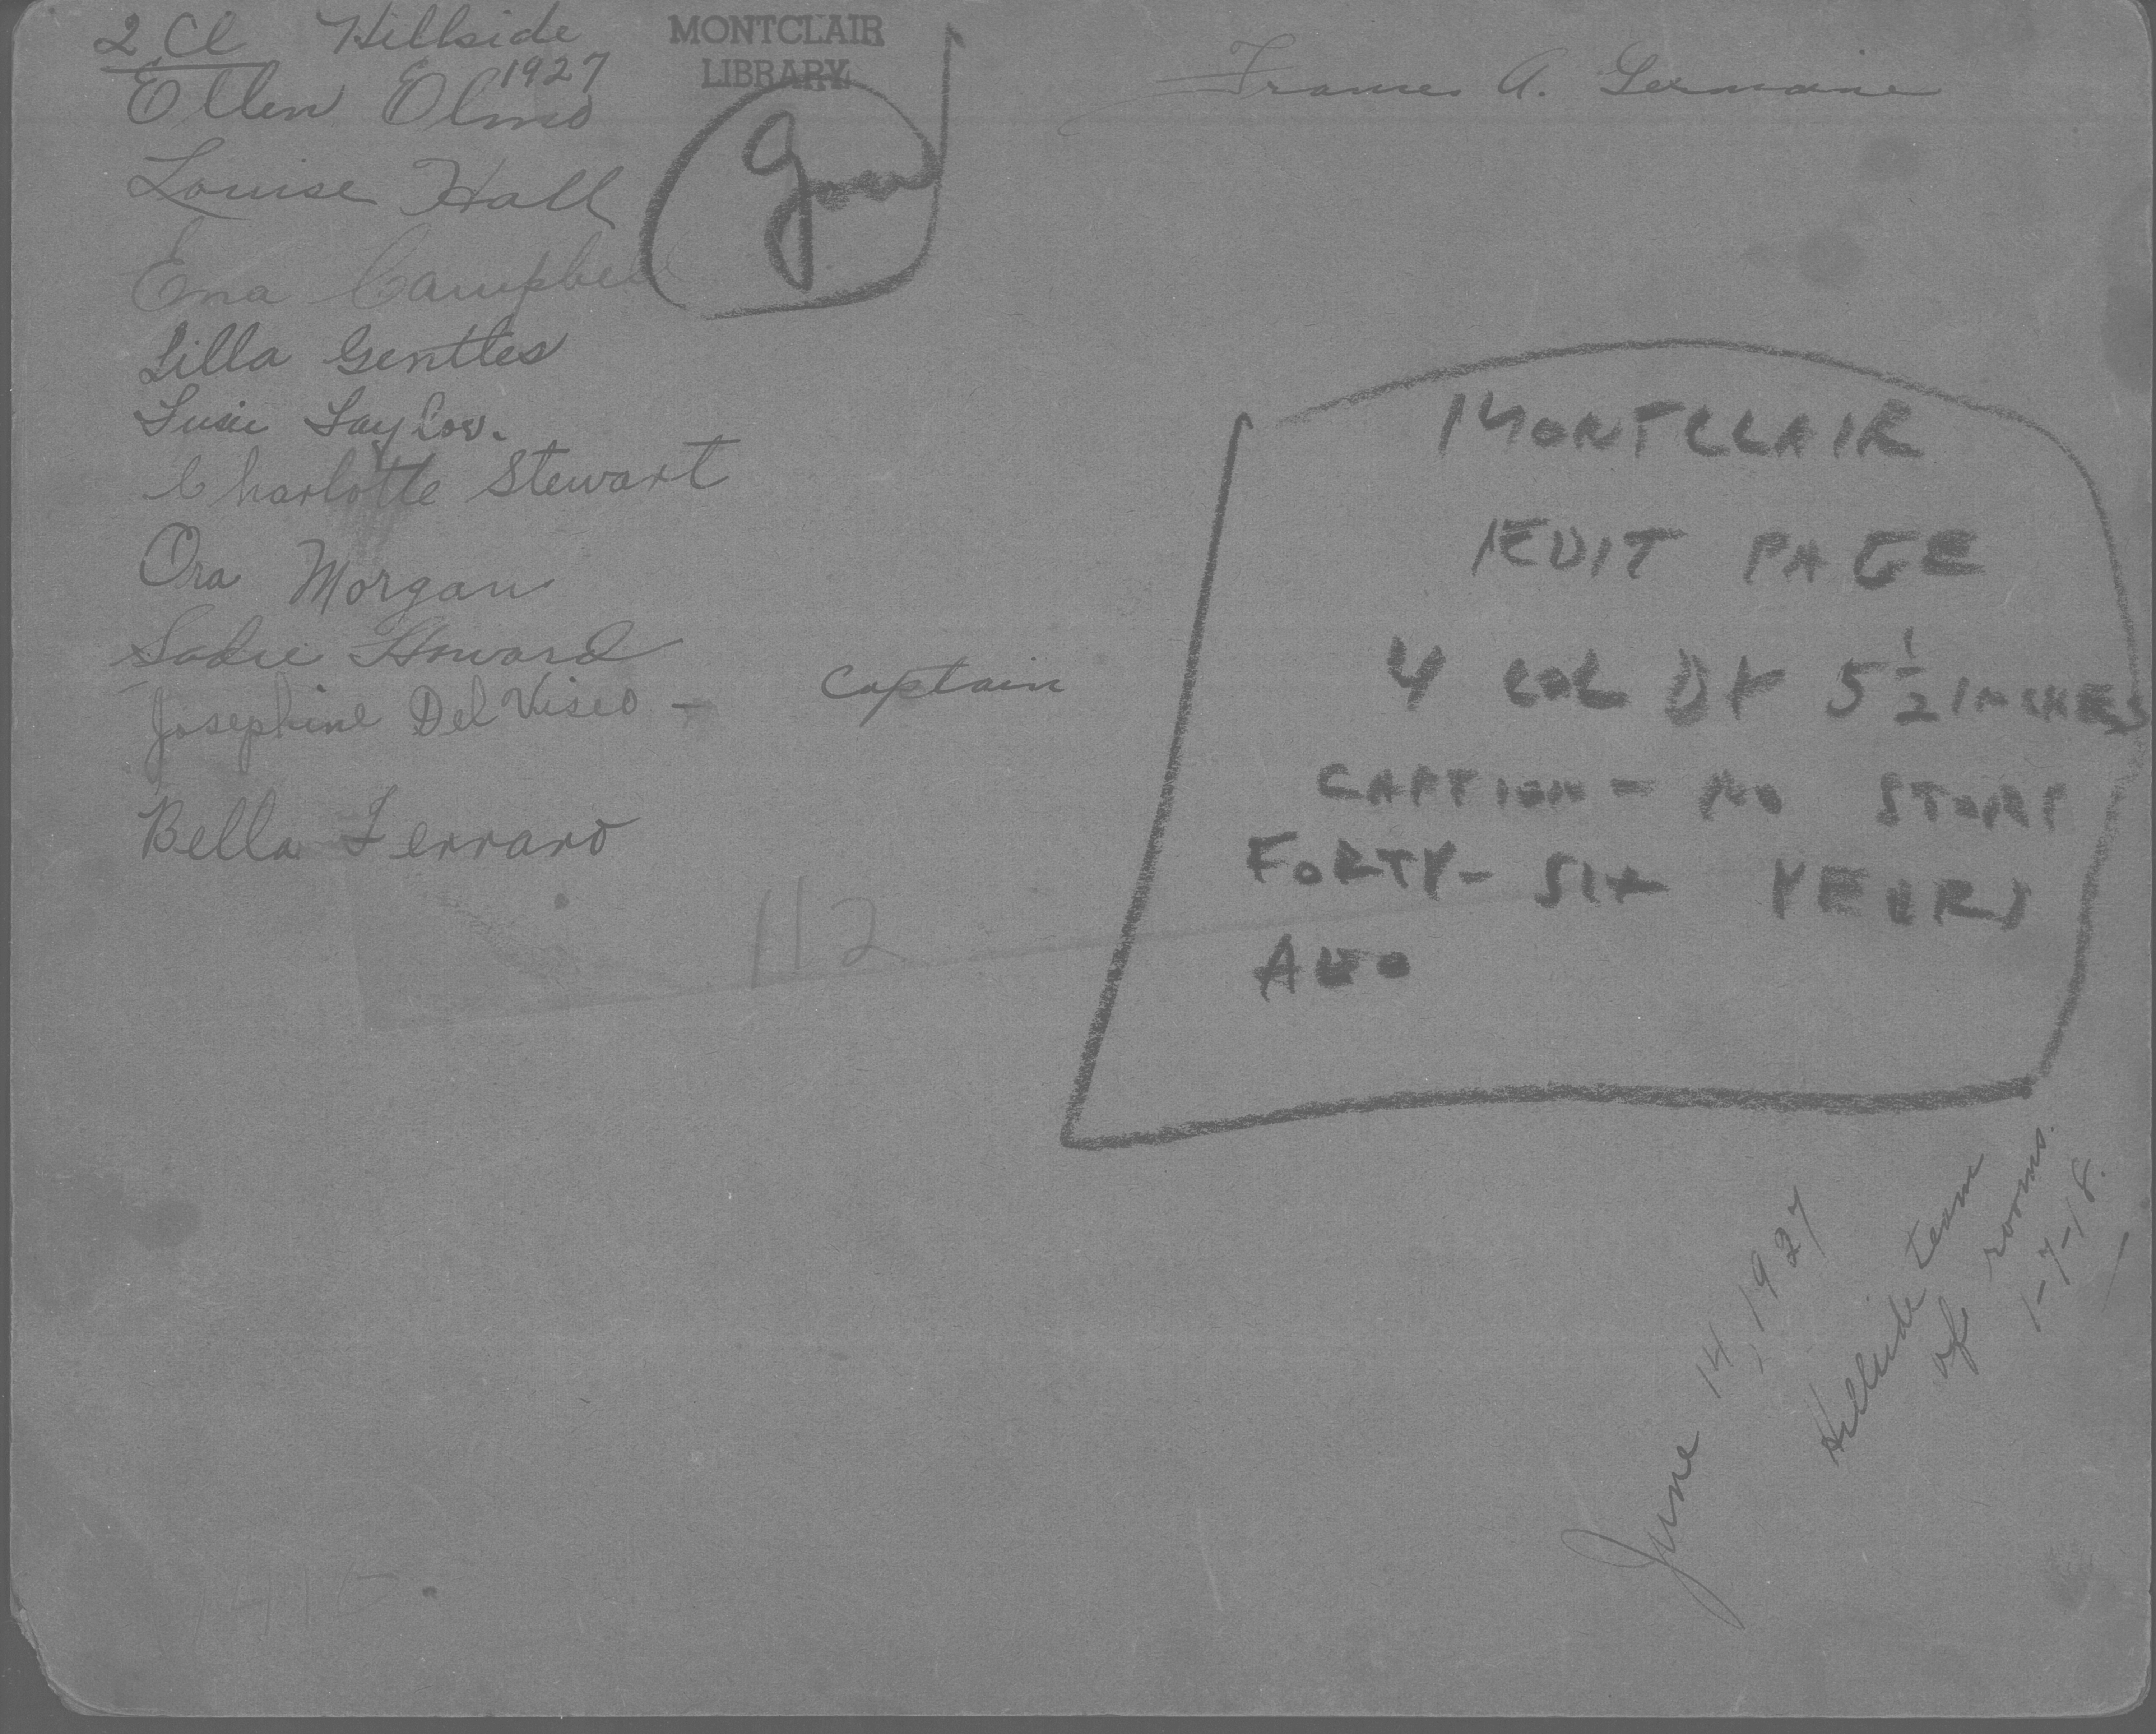 2 Cl Hillside
1927
MONTCLAIR
LIBRARY
Frances A. Germaine
Ellen Olmo
Louise Hall
Ena Campbell
Lilla Gentles
Susie Taylor.
Charlotte Stewart
Ora Morgan
Sadie Howard
Josephine Del Viseo - Captain
Bella Ferraro
112
MONTCLAIR
EDIT PAGE
4 COL BY 5 1/2 INCHES
CAPTION - NO STORY
FORTY-SIX YEARS
AGO
June 14, 1927
Hillside team
of rooms.
1-7-18.